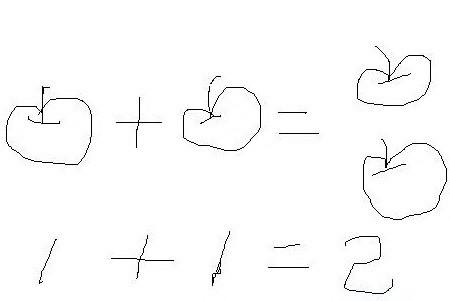 + =
1 + 1 = 2